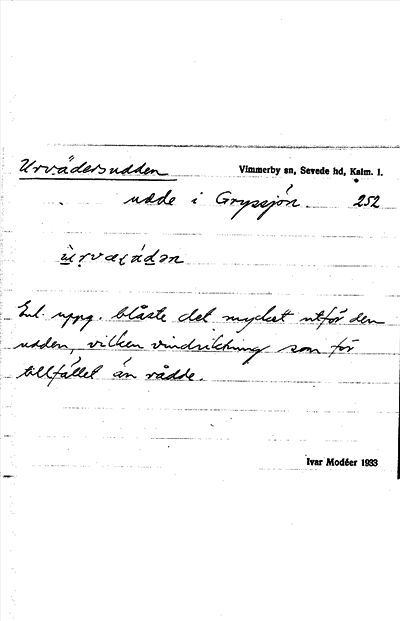 Urvädersudden
Vimmerby sn, Sevede hd, Kalm. l.
udde i Gryssjön. 252
Enl. uppg. blåste det mycket utför den
udden, vilken vindriktning som för
tillfället än rådde.
Ivar Modéer 1933